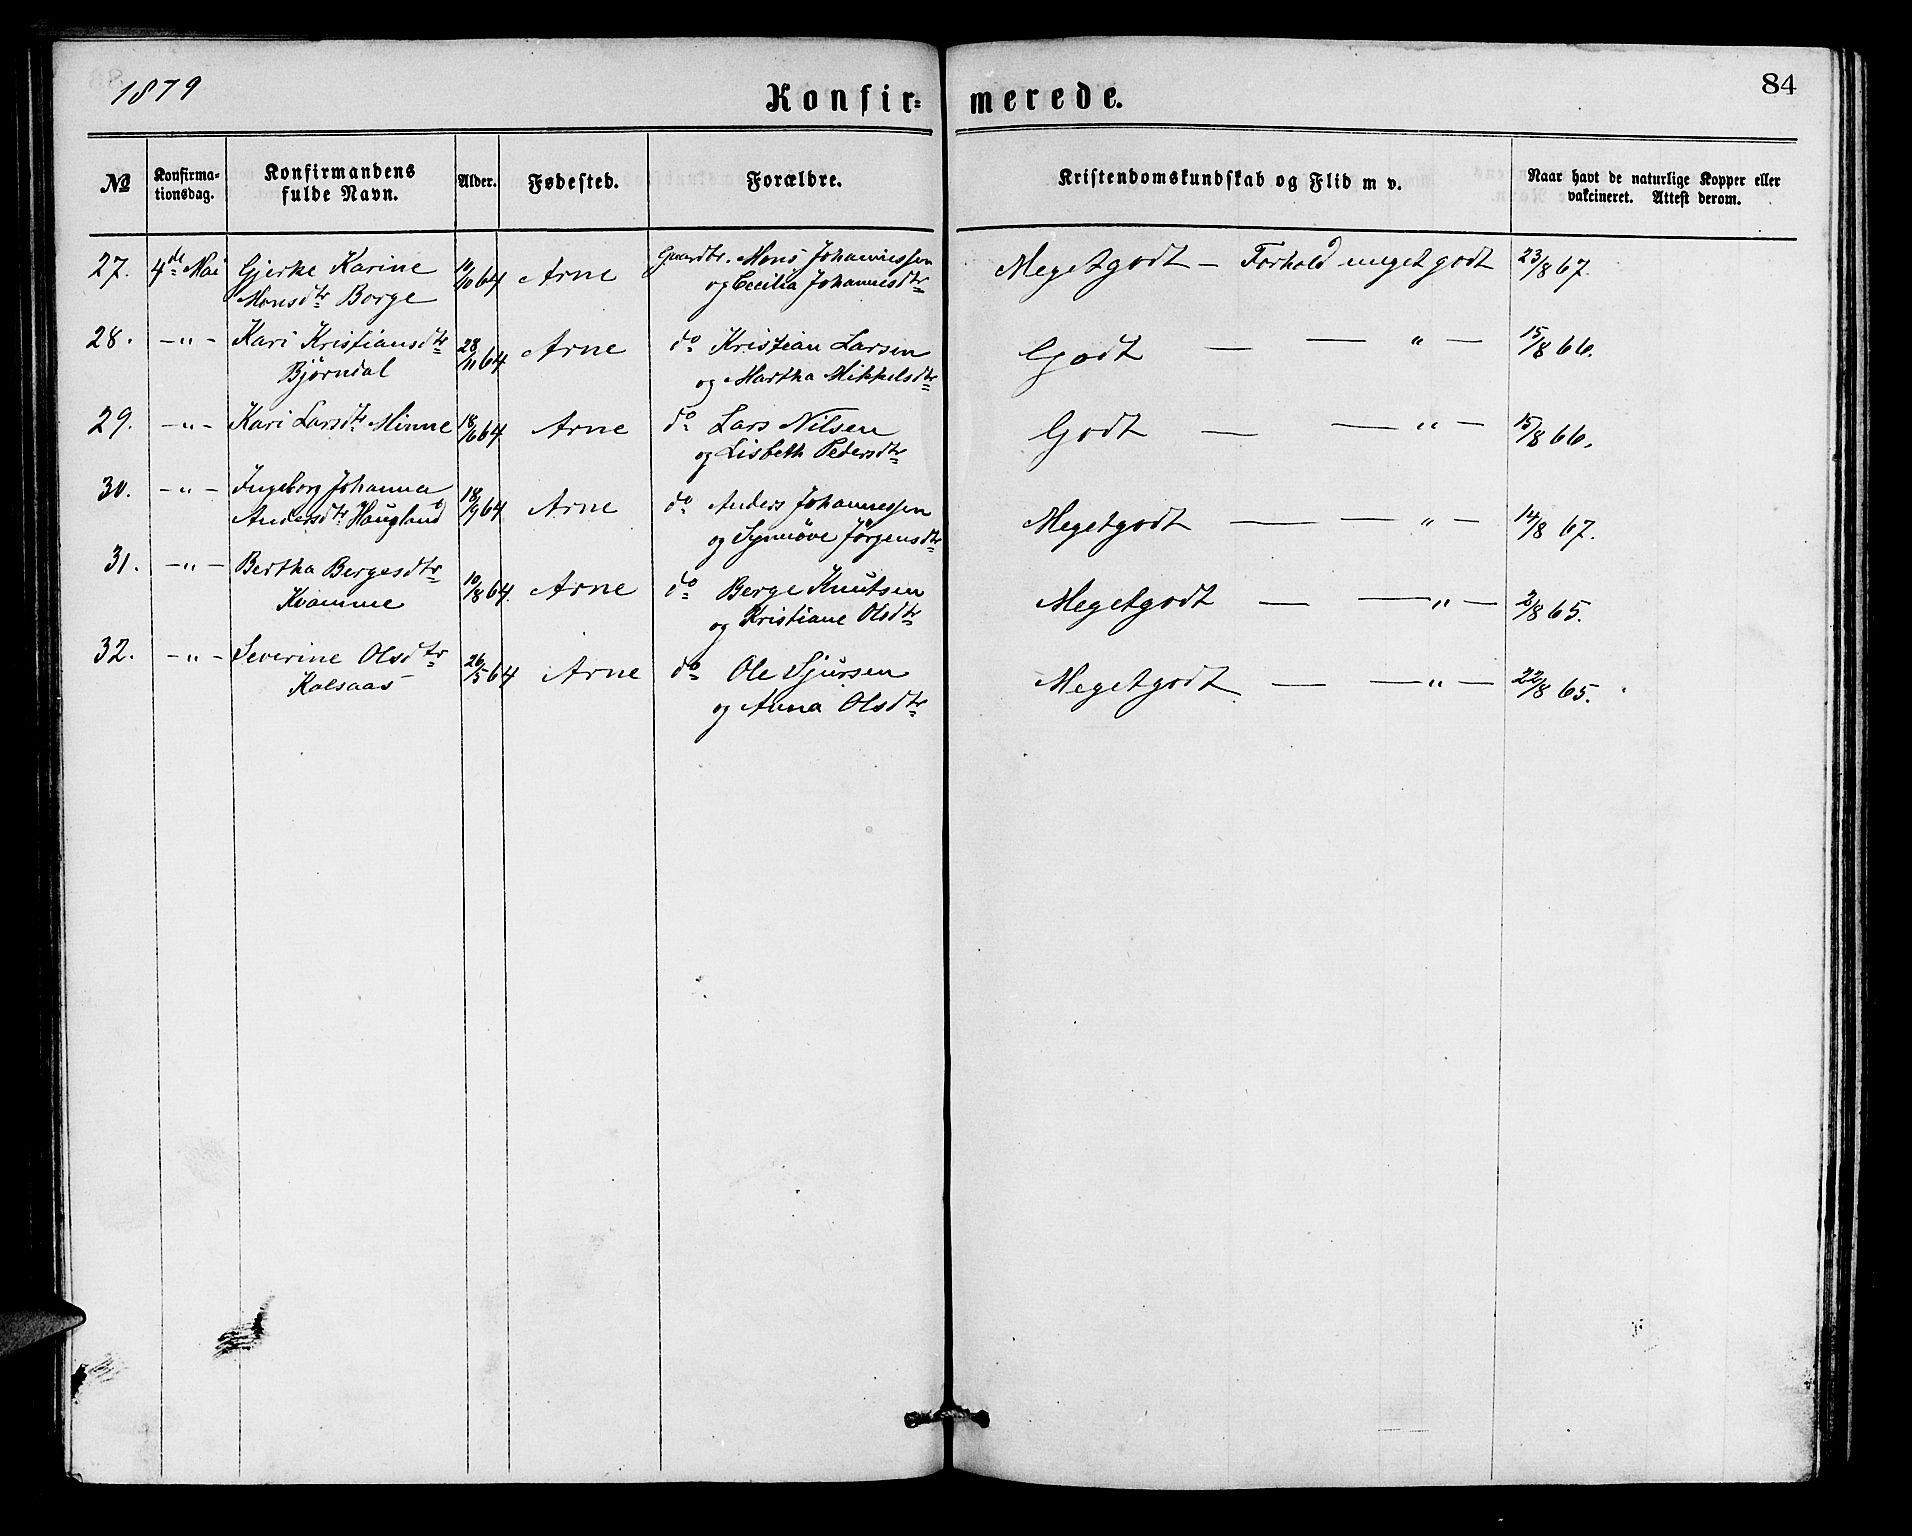 1879
Konfir= merede.
84
No
Konfirma-
tionsdag.
Konfirmandens
fulde Navn.
Alder.
Fødested.
Forældre.
Kristendomskundskab og Flid m v.
Naar havt de naturlige Kopper eller
vakcineret. Attest derom.
27. 4de Mai Gjerke Karine 64 Arne Gaardbr. Mons Johannessen Megetgodt — Forhold meget godt 23/8 67.
Monsdtr Borge og Cecilia Johannesdtr
28. — „ — Kari Kristiansdtr 28/11 64 Arne do Kristian Larsen Godt — — „ — 15/8 66.
Bjørndal og Martha Mikkelsdtr
29. — „ — Kari Larsdtr Minne 18/6 64 Arne do Lars Nilsen Godt — — „ — 15/8 66.
og Lisbeth Pedersdtr
30. — „ — Ingeborg Johanna 18/9 64 Arne do Anders Johannessen Megetgodt — — „ — 14/8 67.
Andersdtr Haugland og Synnøve Jørgensdtr
31. — „ — Bertha Bergesdtr 10/8 64. Arne do Berge Knutsen Megetgodt — — „ — 2/8 65.
Kvamme og Kristiane Olsdtr
32. — „ — Severine Olsdtr 26/5 64 Arne do Ole Sjursen Megetgodt — — „ — 22/8 65.
Kalsaas og Anna Olsdtr